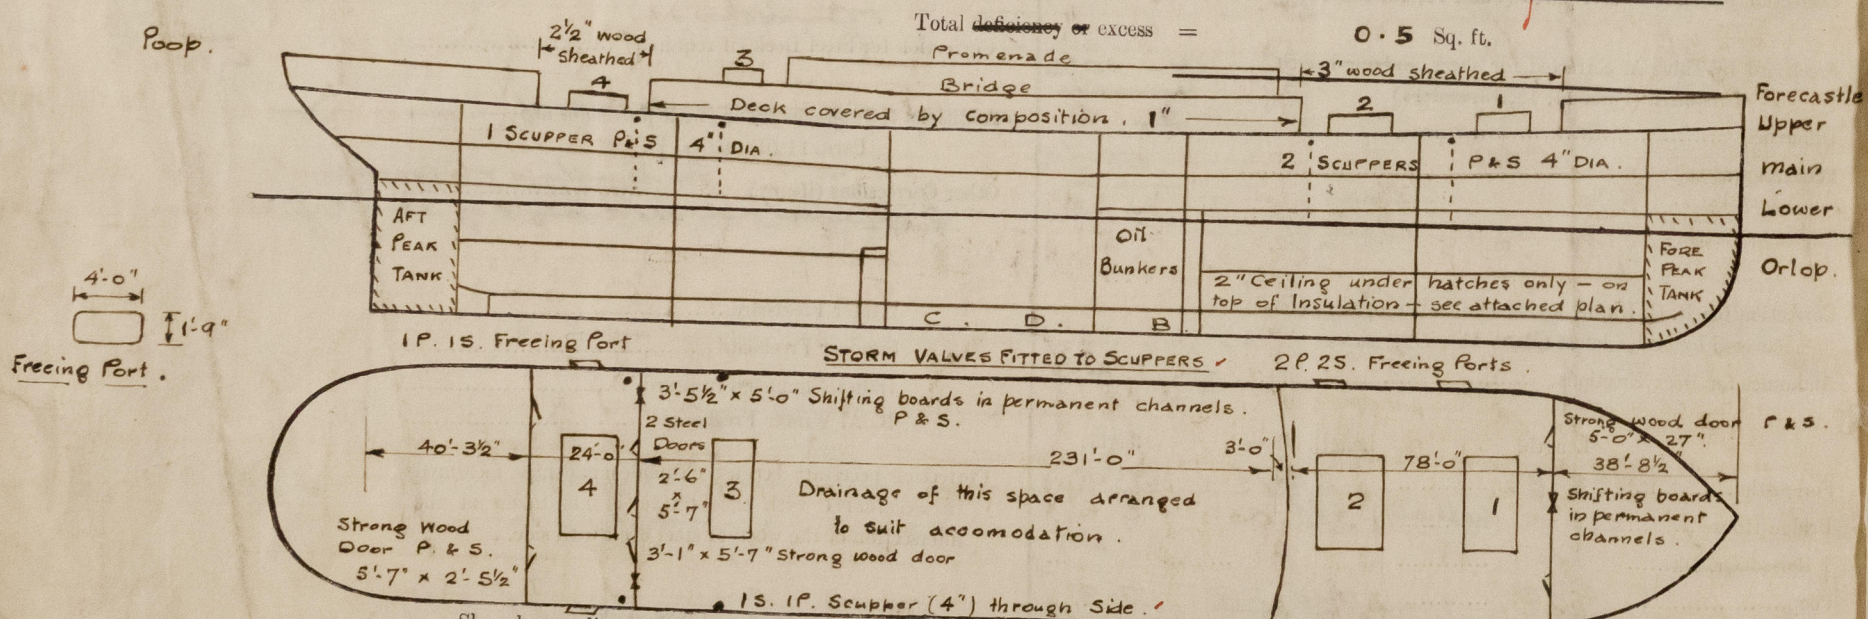 Total deficiency or excess = 0·5 Sq. ft.
Poop.
2½" wood
sheathed
4
3
Promenade
Bridge
3" wood sheathed
Deck covered by composition. 1"
2
1
Forecastle
Upper
main
Lower
Orlop.
1 SCUPPER P&S 4" DIA.
2 SCUPPERS P&S 4" DIA.
AFT
PEAK
TANK
Oil
Bunkers
2" Ceiling under hatches only – on
top of Insulation – see attached plan.
FORE
PEAK
TANK
C. D. B
4'-0"
1'-9"
Freeing Port.
1P. 1S. Freeing Port
STORM VALVES FITTED TO SCUPPERS
2P. 2S. Freeing Ports.
3'-5½" x 5'-0" Shifting boards in permanent channels.
P & S.
2 Steel
Doors
2'-6"
x
5'-7"
40'-3½"
24'-0"
231'-0"
3'-0"
78'-0"
38'-8½"
Strong wood door P & S.
5'-0" x 27".
4
3
2
1
Drainage of this space arranged
to suit accomodation.
Shifting boards
in permanent
channels.
Strong Wood
Door P. & S.
5'-7" x 2'-5½"
3'-1" x 5'-7" Strong wood door
1S. 1P. Scupper (4") through Side.